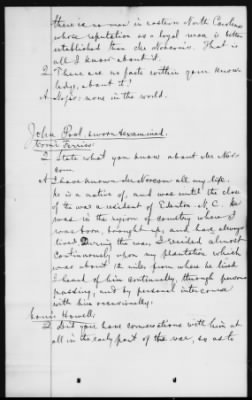 there is no man in eastern North Carolina
whose reputation as a loyal man is better
established than Mr Norcom's. That is
all I know about it.
Q There are no facts within your know-
ledge, about it?
A No sir: none in the world.
John Pool, sworn & examined.
Comr Ferriss:
Q State what you know about Mr Nor-
com.
A I have known Mr Norcom all my life.
he is a native of, and was until the close
of the war a resident of Edenton N.C. He
was in the region of country where I
was born, brought up, and have always
lived. During the war, I resided almost
continuously upon my plantation which
was about 12 miles from where he lived
I heard of him continually, through persons
passing, and by personal intercourse
with him occasionally.
Comr. Howell:
Q Did you have conversations with him at
all in the early part of the war, so as to